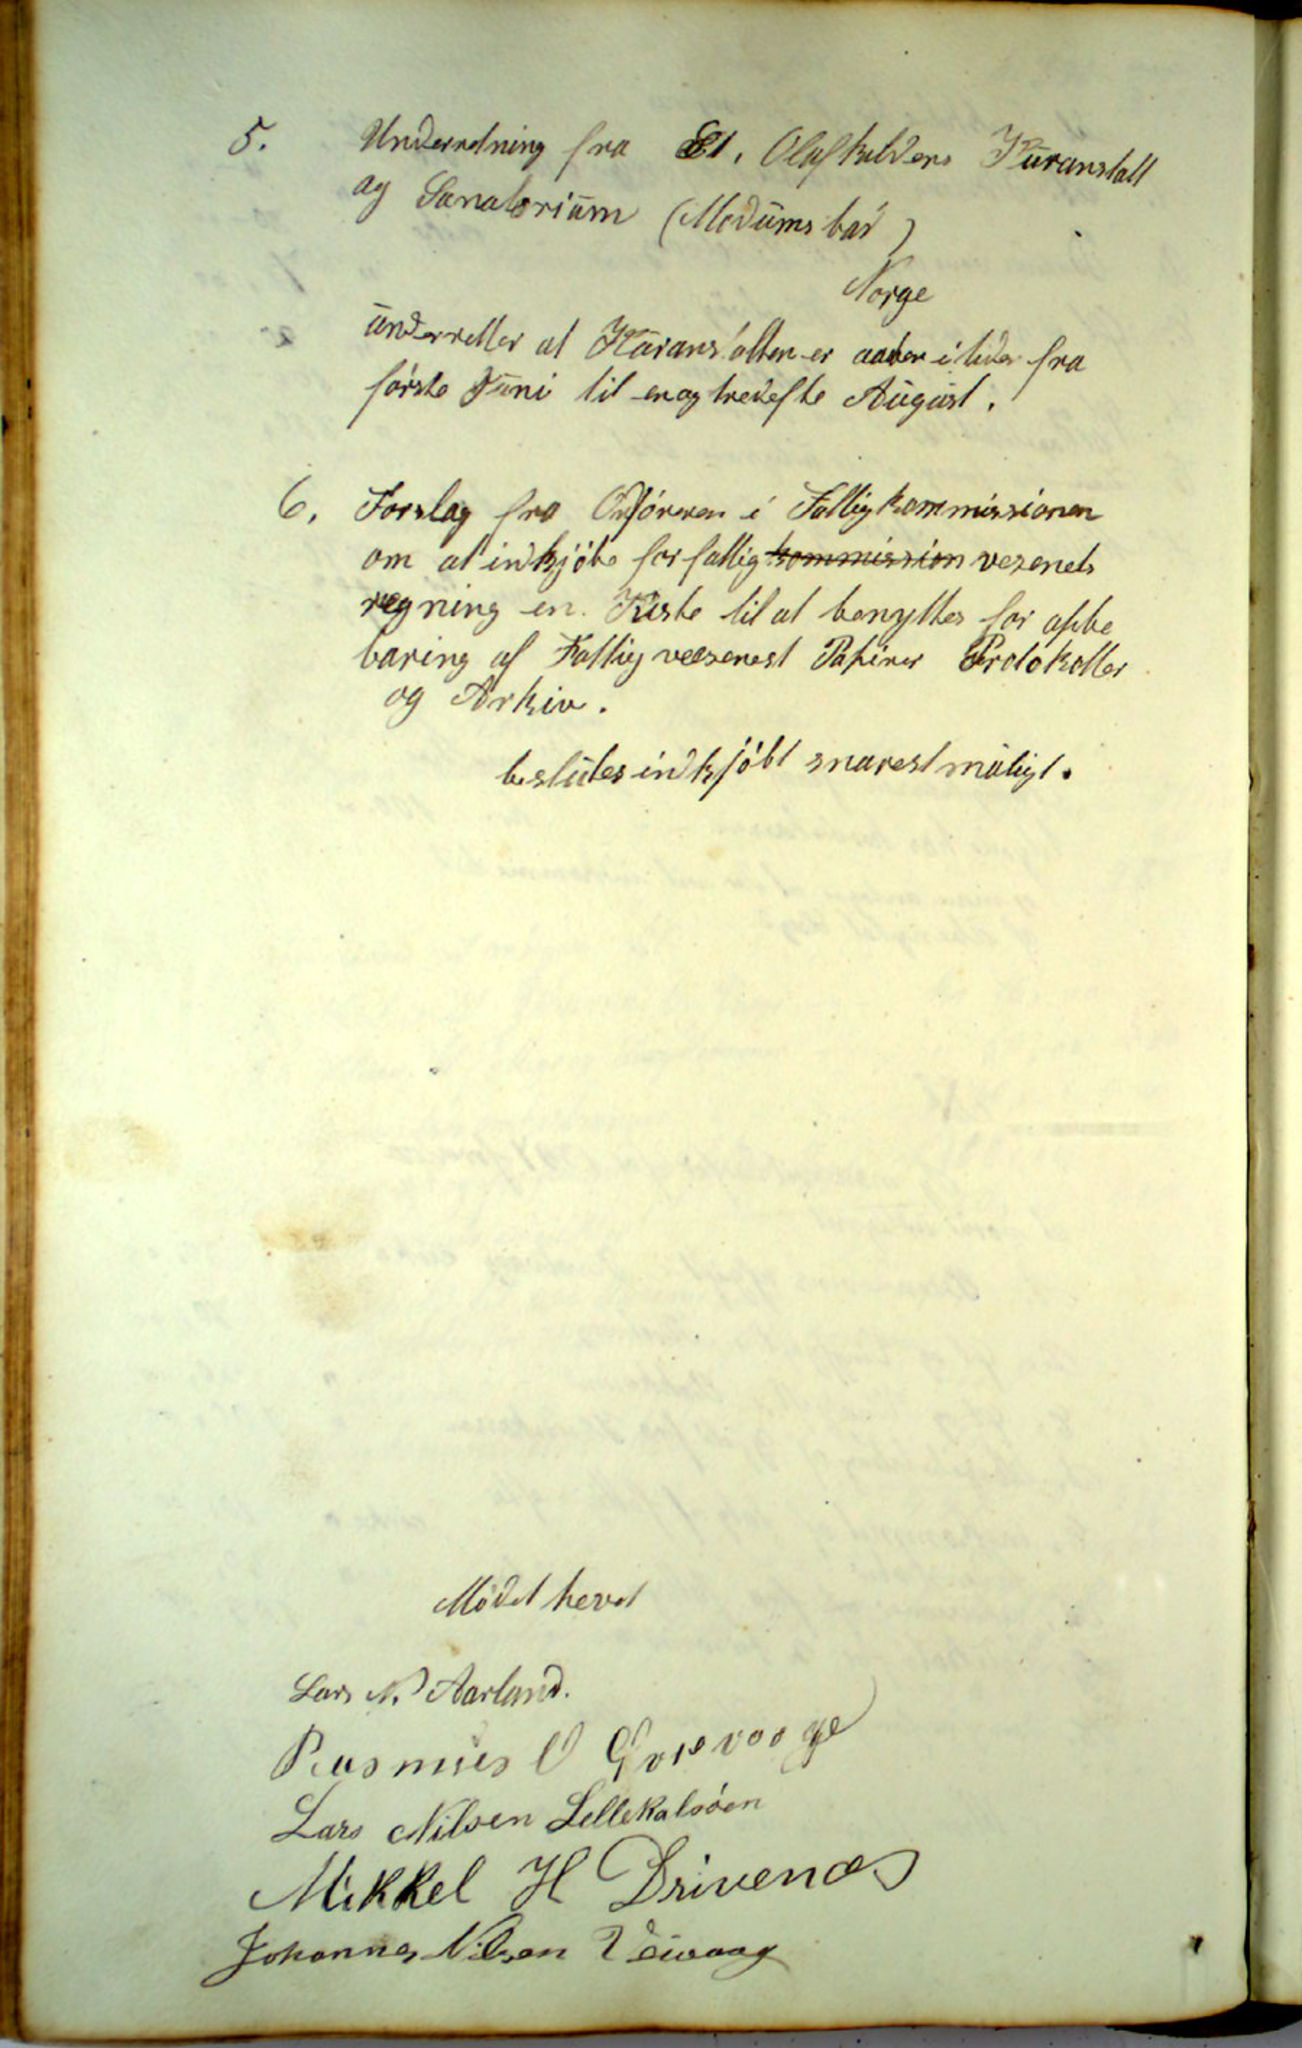 5. Underretning fra St. Olafkildens Kuranstalt
og Sanatorium (Modums bad)
Norge
underretter at Kuranstalten er aaben i tiden fra
første Juni til enogtredefte August.
6. Forslag fra Ordføreren i Fattigkommissionen
om at indkjøbe for fattig kommission vesenets
regning en Kiste til at benyttes for opbe
varing af Fattigvæsenest Papirer Protokoller
og Arkiv.
besluttes indkjøbt snarest muligt.
Mødet hevet
Lars N. Aarland.
Rasmus O
Lars Nilsen Lellekalsøen
Mikkel H Drivenæs
Johannes Nilsen Veivaag